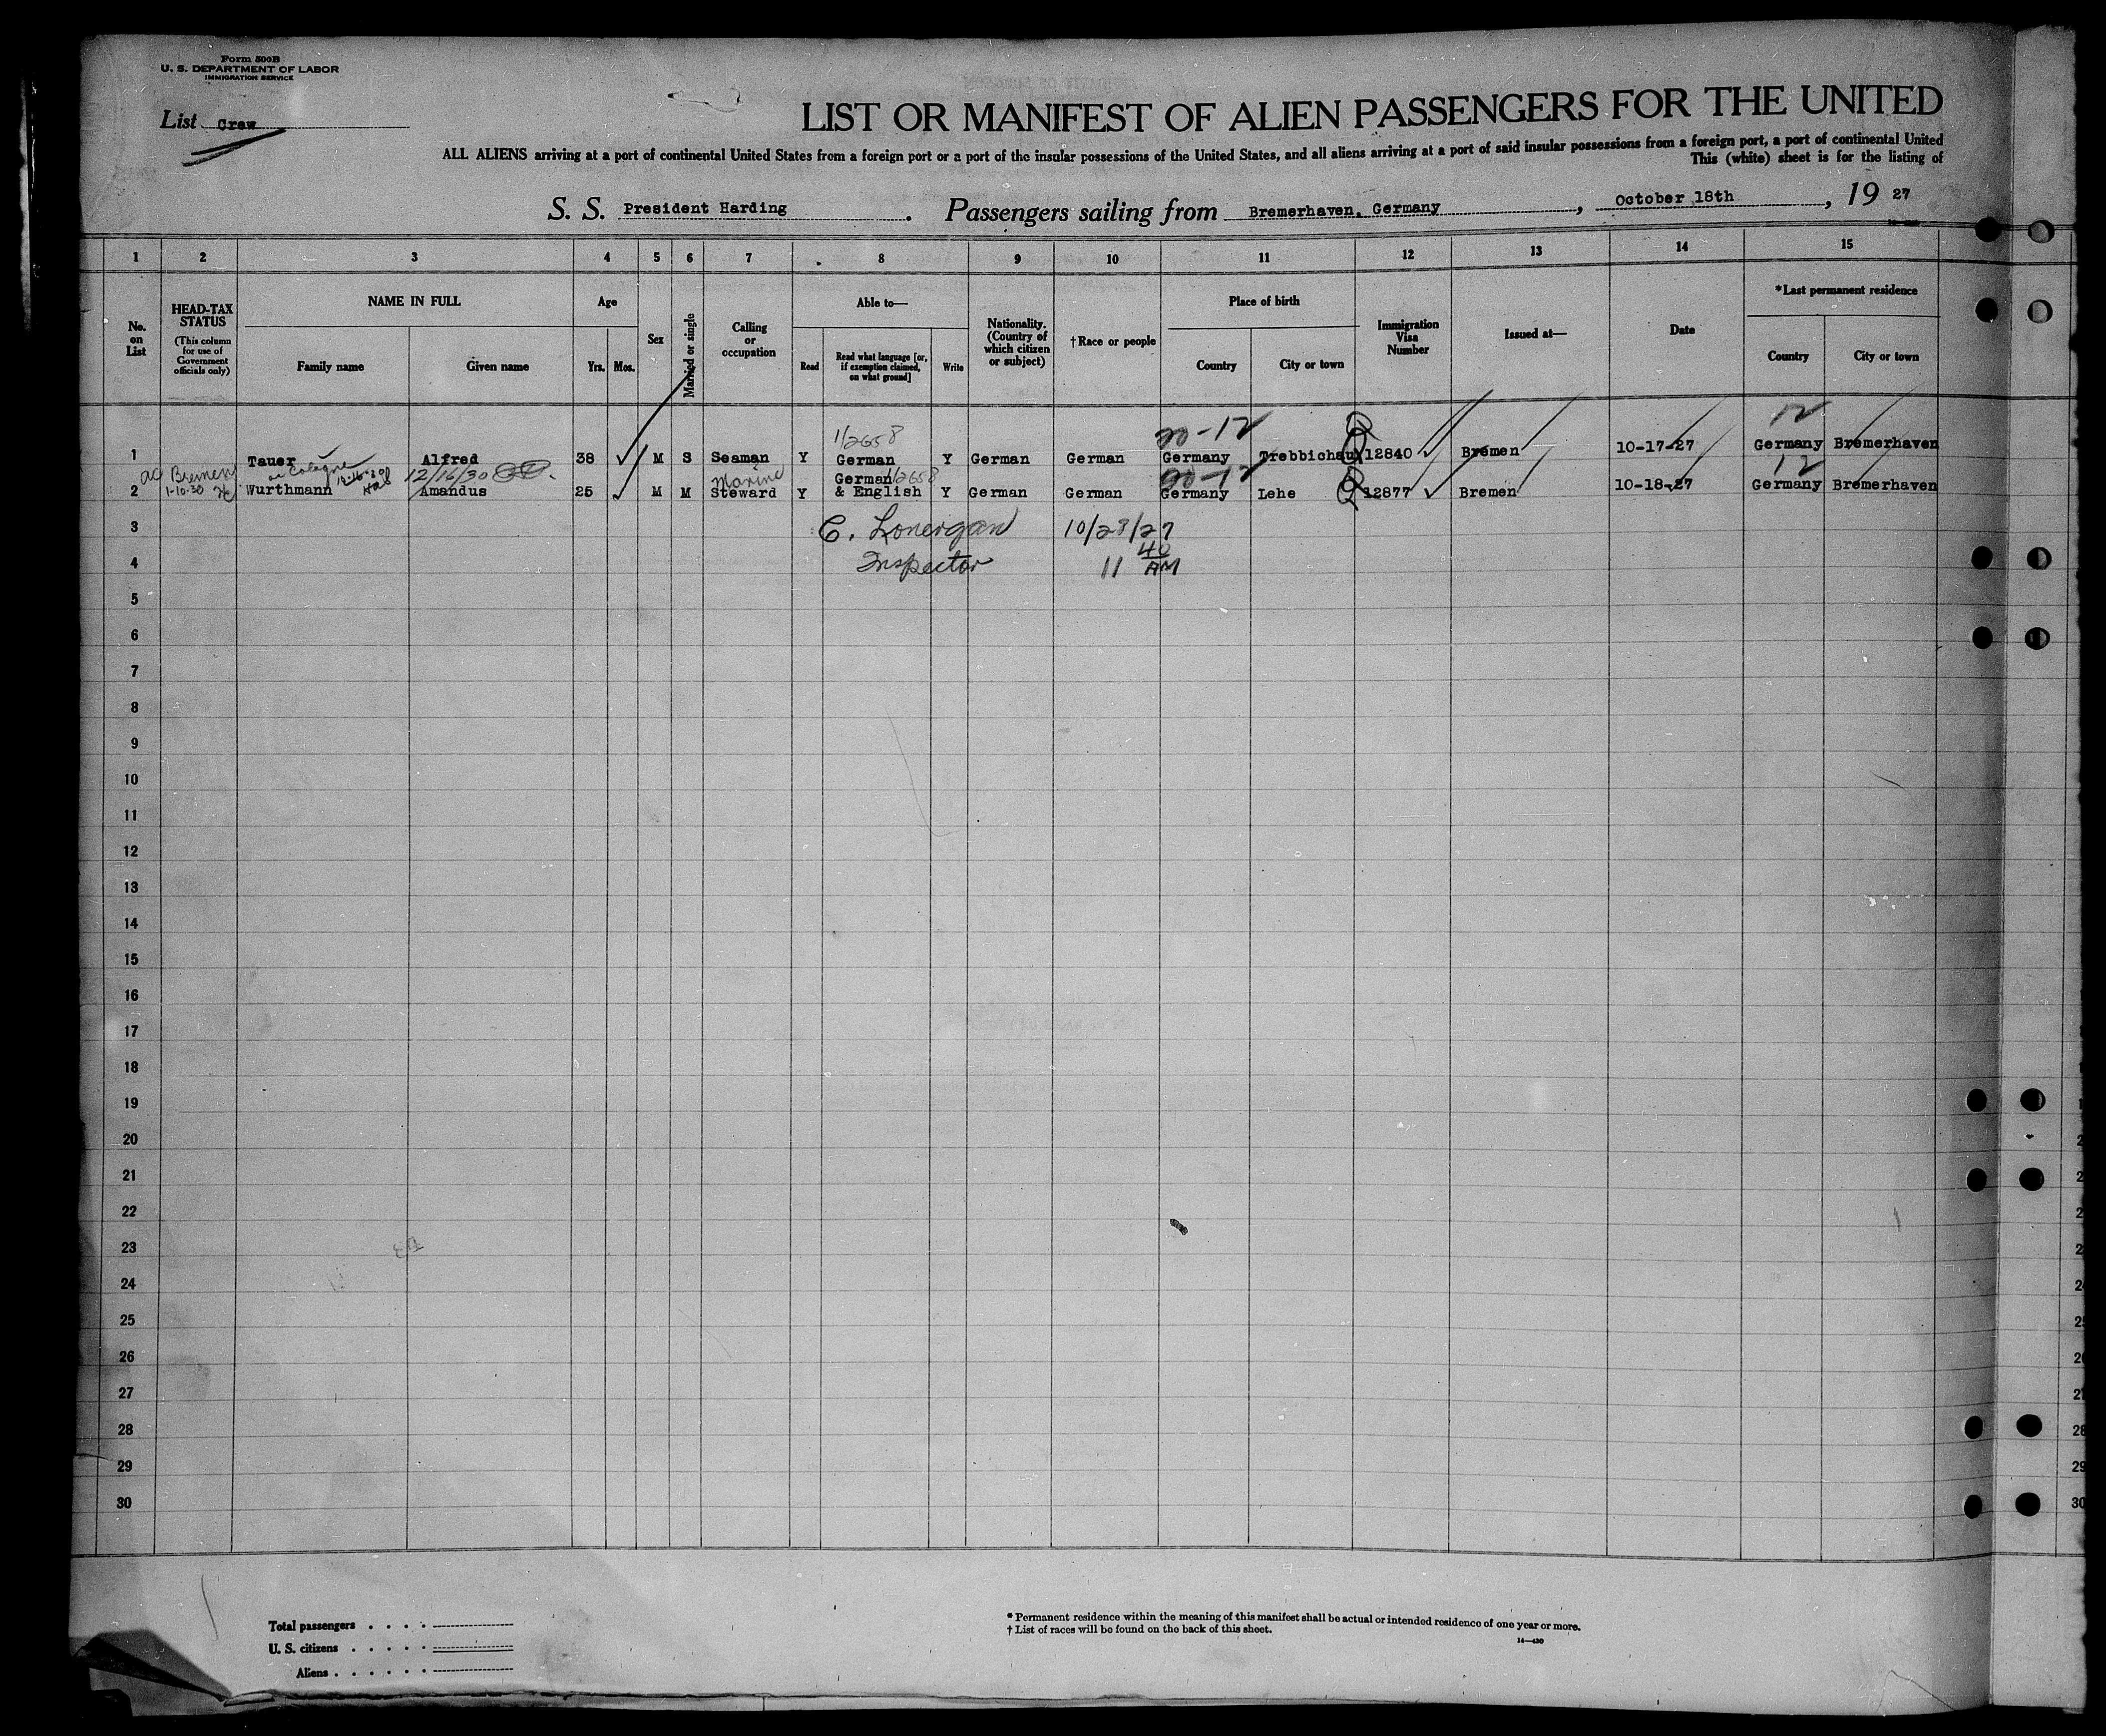 Form 500B
U. S. DEPARTMENT OF LABOR
IMMIGRATION SERVICE
List Crew
LIST OR MANIFEST OF ALIEN PASSENGERS FOR THE UNITED
ALL ALIENS arriving at a port of continental United States from a foreign port or a port of the insular possessions of the United States, and all aliens arriving at a port of said insular possessions from a foreign port, a port of continental United
This (white) sheet is for the listing of
S. S. President Harding . Passengers sailing from Bremerhaven, Germany , October 18th , 19 27
1 2 3 4 5 6 7 8 9 10 11 12 13 14 15
No. on List
HEAD-TAX STATUS
(This column for use of Government officials only)
NAME IN FULL
Family name Given name
Age
Yrs. Mos.
Sex
Married or single
Calling or occupation
Able to—
Read
Read what language [or, if exemption claimed, on what ground]
Write
Nationality. (Country of which citizen or subject)
†Race or people
Place of birth
Country City or town
Immigration Visa Number
Issued at—
Date
*Last permanent residence
Country City or town
1/2658 20-12 12
1 Tauer Alfred 38 M S Seaman Y German Y German German Germany Trebbichau 12840 Bremen 10-17-27 Germany Bremerhaven
Bremen Cologne 12/16/30 Marine 1/2658 20-12 12
1-10-30
2 Wurthmann Amandus 25 M M Steward Y German & English Y German German Germany Lehe 12877 Bremen 10-18-27 Germany Bremerhaven
3 C. Lonergan 10/28/27
4 Inspector 11 40 AM
5
6
7
8
9
10
11
12
13
14
15
16
17
18
19
20
21
22
23
24
25
26
27
28
29
30
Total passengers . . . .
U. S. citizens . . . . .
Aliens . . . . . .
* Permanent residence within the meaning of this manifest shall be actual or intended residence of one year or more.
† List of races will be found on the back of this sheet.
14—430